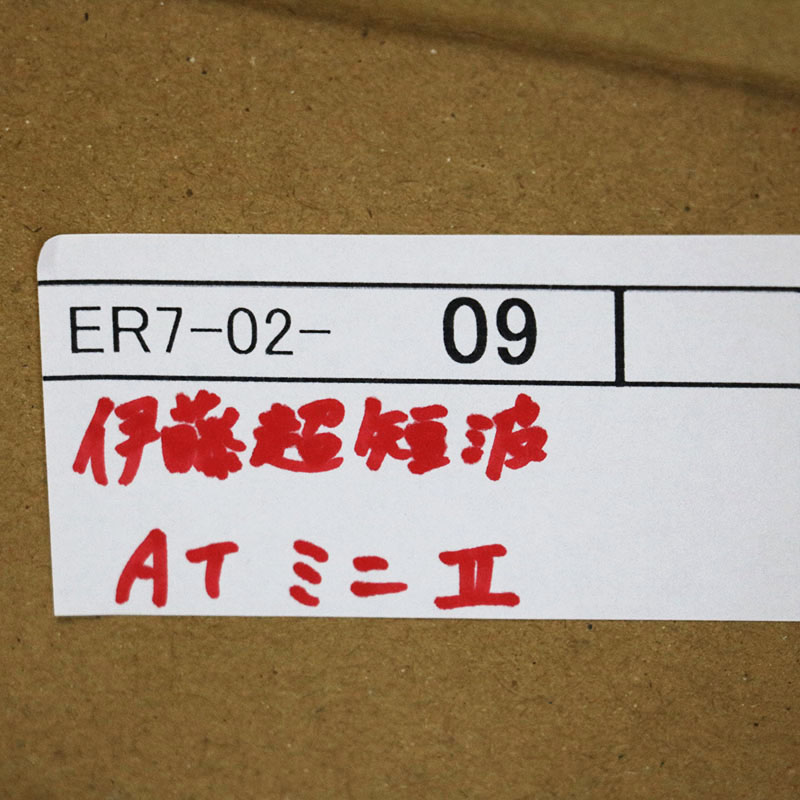 ER7-02- 09
伊藤超短波
AT ミニ Ⅱ